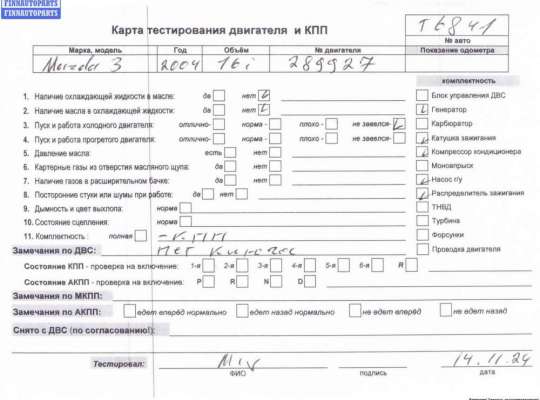 FINNAUTOPARTS
FINNAUTOPARTS
Карта тестирования двигателя и КПП
Т6841
№ авто
Марка, модель Год Объём № двигателя Показание одометра
Mazda 3 2004 1.6i 289927
комплектность
1. Наличие охлаждающей жидкости в масле: да нет
Блок управления ДВС
2. Наличие масла в охлаждающей жидкости: да нет
Генератор
3. Пуск и работа холодного двигателя: отлично- норма - плохо - не завелся-
Карбюратор
4. Пуск и работа прогретого двигателя: отлично- норма - плохо - не завелся-
Катушка зажигания
5. Давление масла: есть нет
Компрессор кондиционера
6. Картерные газы из отверстия масляного щупа: да нет
Моновпрыск
7. Наличие газов в расширительном бачке: да нет
Насос г/у
8. Посторонние стуки или шумы при работе: да нет
Распределитель зажигания
9. Дымность и цвет выхлопа: норма
ТНВД
10. Состояние сцепления: норма
Турбина
11. Комплектность : полная - КПП
Форсунки
Замечания по ДВС: нет
Проводка двигателя
Состояние КПП - проверка на включение: 1-я 2-я 3-я 4-я 5-я 6-я R
Состояние АКПП - проверка на включение: P R N D
Замечания по МКПП:
Замечания по АКПП: едет вперёд нормально едет назад нормально не едет вперёд не едет назад
Снято с ДВС (по согласованию!):
Тестировал: 14.11.24
ФИО подпись дата